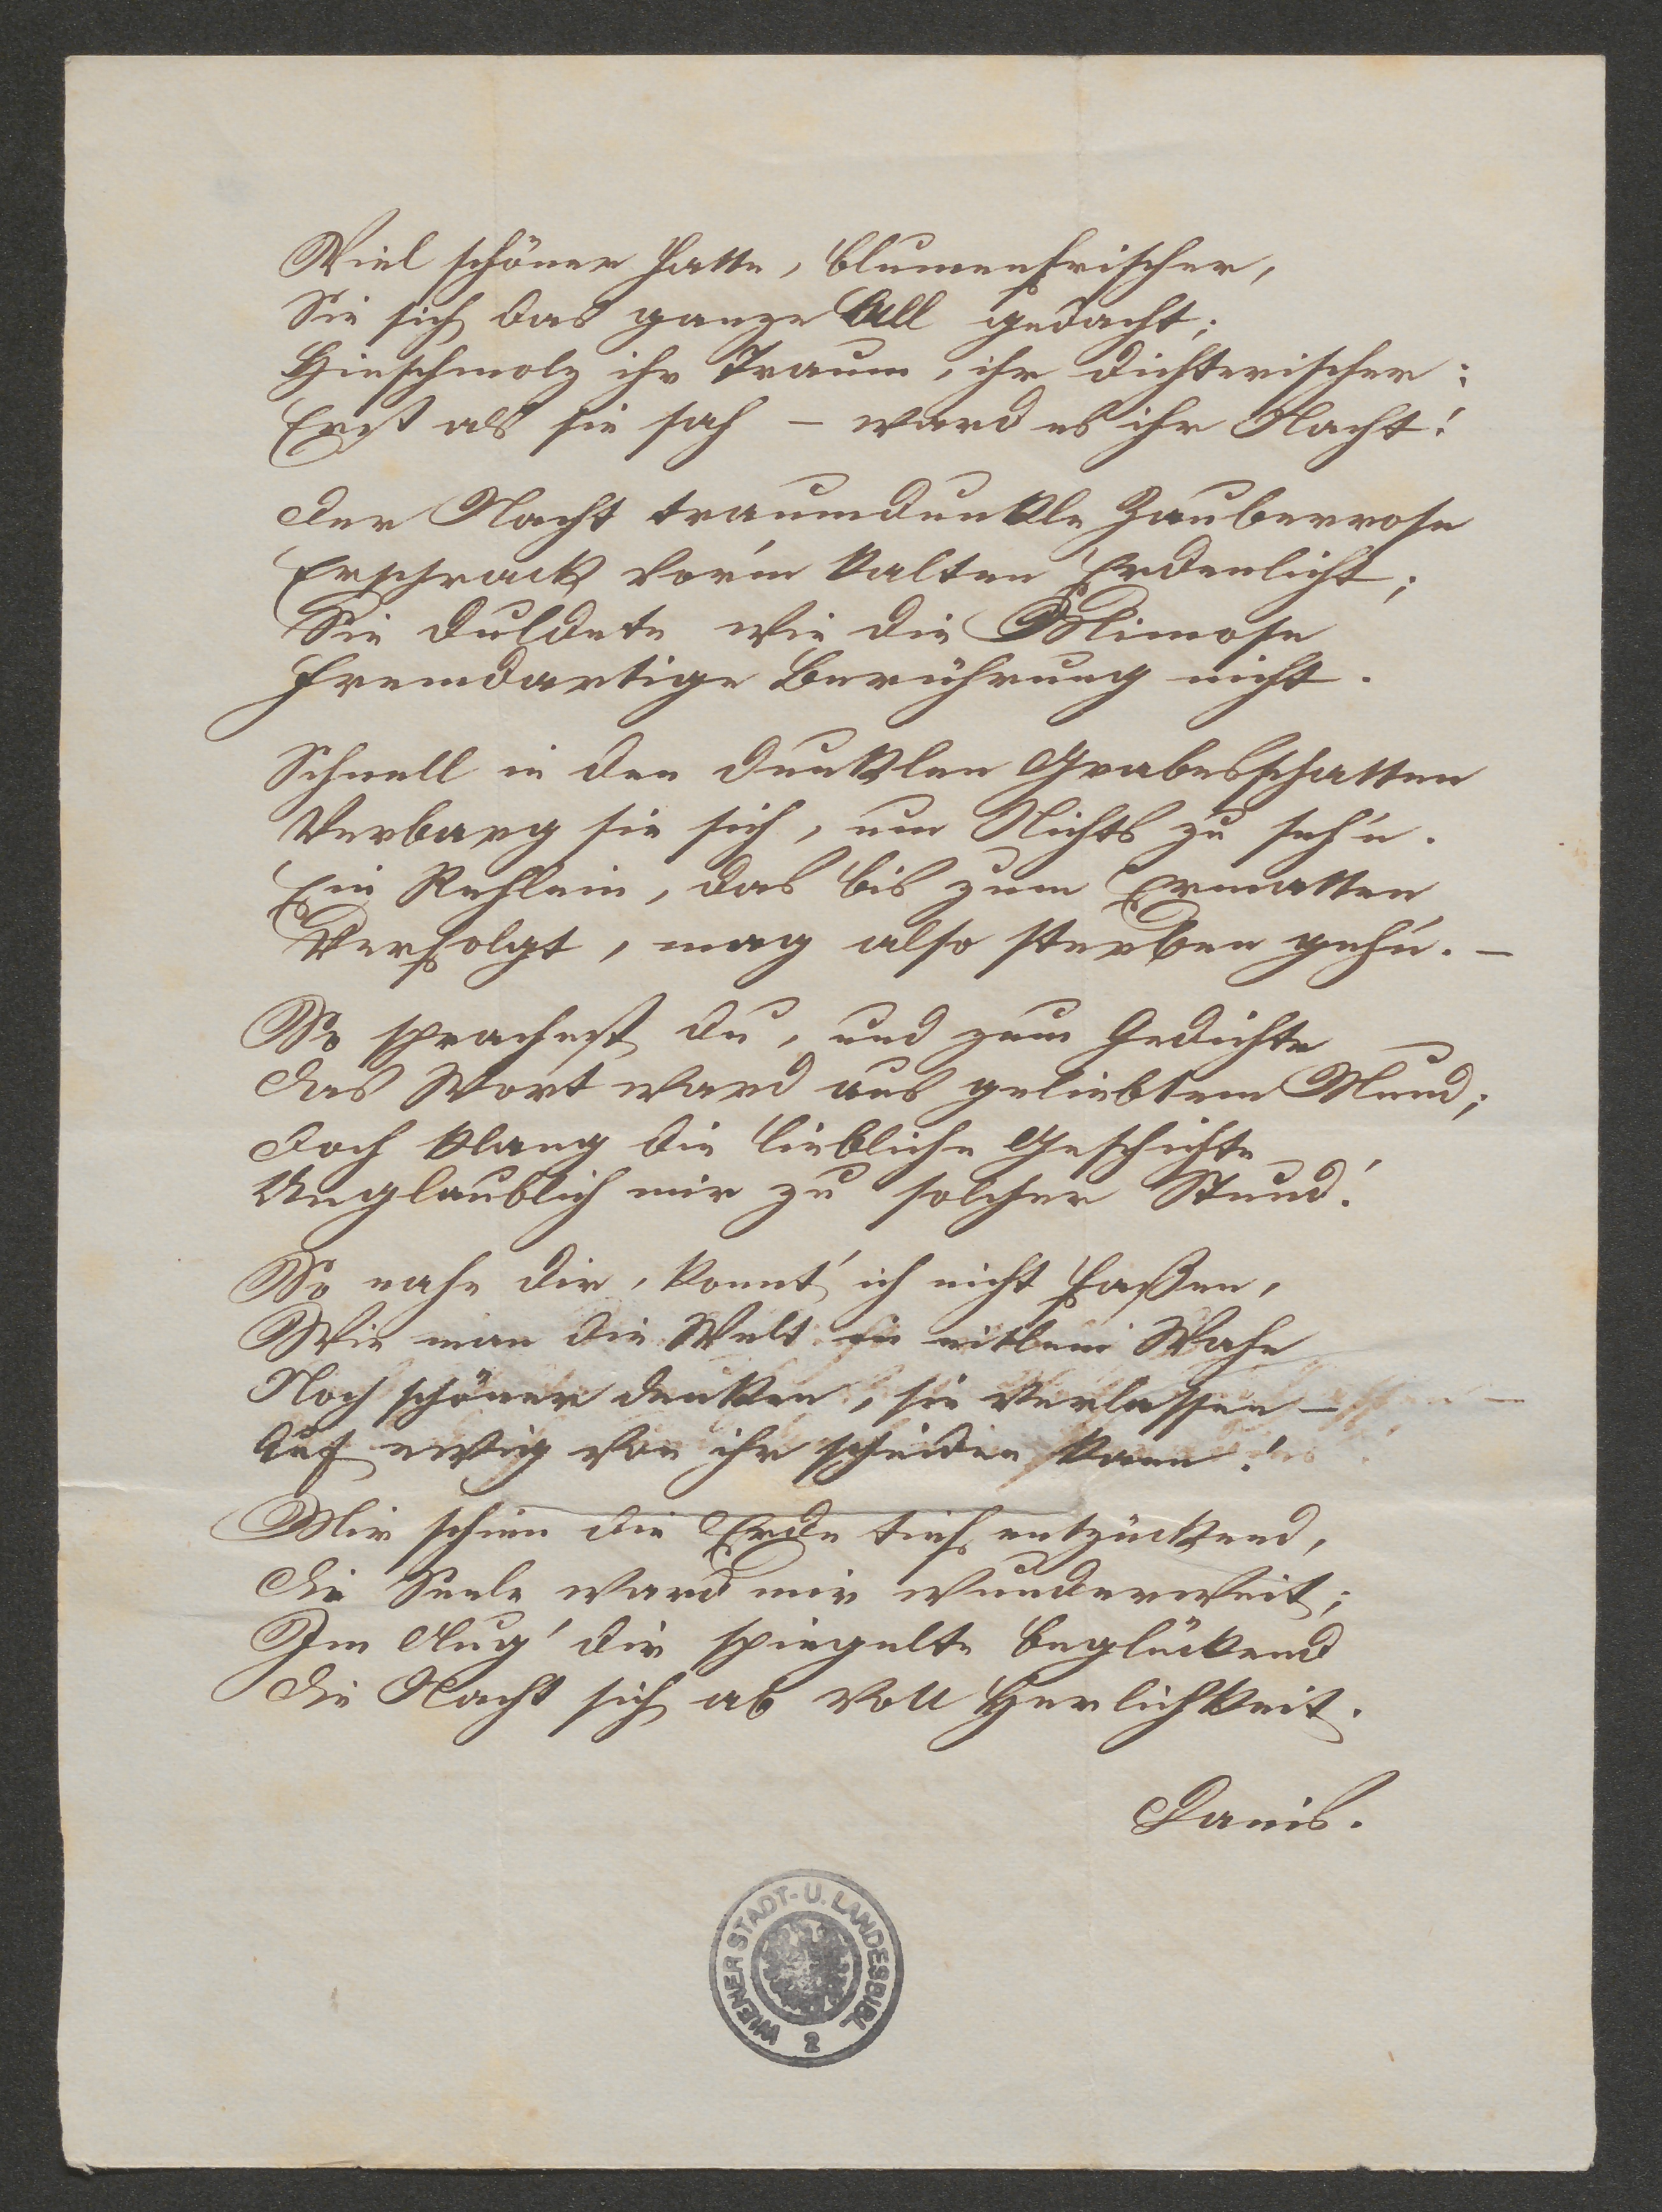 Viel schöner hatte, blumenfrischer,
Sie sich das ganze All gedacht;
Hinschmolz ihr Traum, ihr dichterischer:
Erst als sie sah – ward es ihr Nacht!
Der Nacht traumdunkle Zauberrose
Erschrack vor'm kalten Erdenlicht;
Sie duldete wie die Mimose
Fremdartige Berührung nicht.
Schnell in den dunklen Grabesschatten
Verbarg sie sich, um Nichts zu seh'n.
Ein Rehlein, das bis zum Ermatten
Verfolgt, mag also sterben geh'n. –
So sprachest du, und zum Gedichte
Das Wort ward aus geliebtem Mund;
Doch klang die liebliche Geschichte
Unglaublich mir zu solcher Stund'!
So nahe dir, konnt' ich nicht faßen,
Wie man die Welt in eitlem Wahn
Noch schöner denken, sie verlassen –
Auf ewig von ihr scheiden kann!
Mir schien die Erde tief entzückend,
Die Seele ward mir wunderweit;
Im Aug' dir spiegelte beglückend
Die Nacht sich ab voll Herlichkeit.
Danis.
WIENER STADT- U. LANDESBIBL.
2